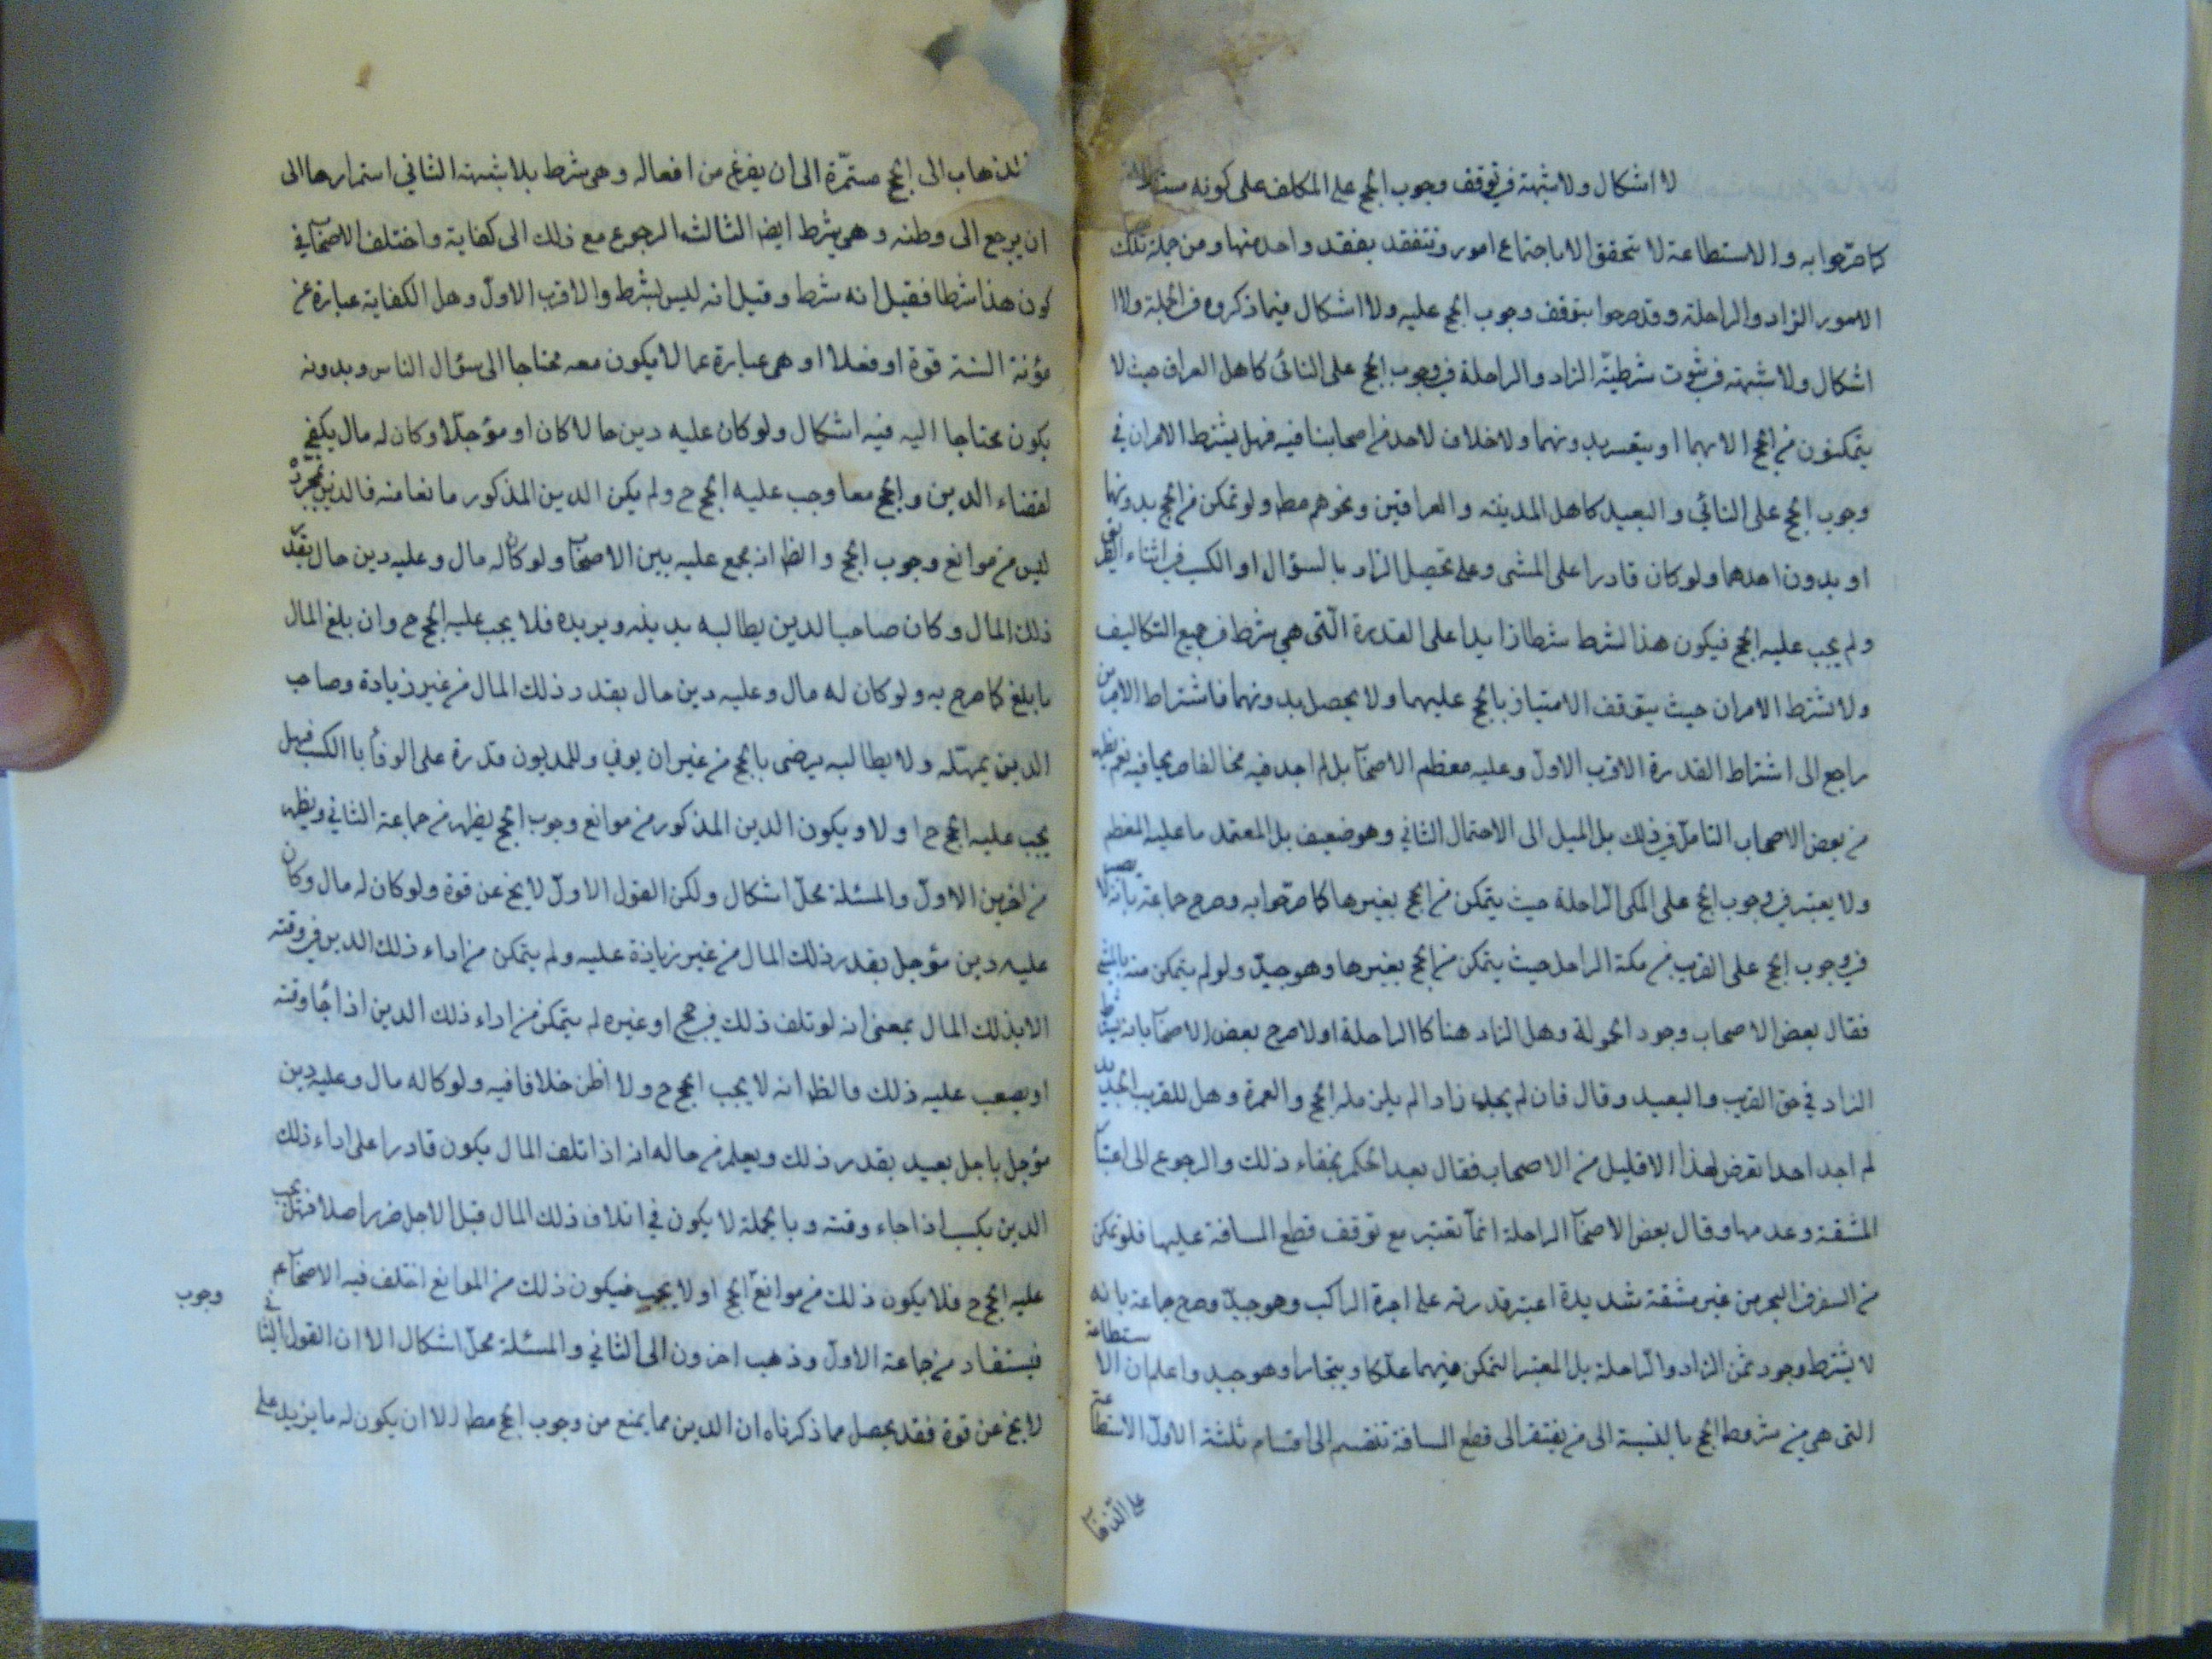 لا اشكال ولا شبهة في توقف وجوب الحج على المكلف على كونه
كما صرّحوا به والاستطاعة لا تتحقق الا باجتماع امور وتنتفقد بفقد واحد منها ومن جملة تلك
الامور الزاد والراحلة وقد صرحوا بتوقف وجوب الحج عليه ولا اشكال فيما ذكروه في الجملة ولا
اشكال ولا شبهة في ثبوت شرطيّة الزاد والراحلة في وجوب الحج على النائى كاهل العراق حيث لا
يتمكنون من الحج الا بهما او يتعسر بدونهما ولا خلاف لاحد من اصحابنا فيه فهل يشترط الامران في
وجوب الحج على النائي والبعيد كاهل المدينة والعراقين ونحوهم مط ولو تمكن من الحج بدونهما
او بدون احدهما ولو كان قادرا على المشى وعلى تحصيل الزاد بالسؤال او الكسب في اثناء الطريق
ولم يجب عليه الحج فيكون هذا لشرط شرطا زايدا على القدرة الّتى هي شرط في جميع التكاليف
ولا نشترط الامران حيث يتوقف الامتياز بالحج عليهما ولا يحصل بدونهما فاشتراط الامرين
راجع الى اشتراط القدرة الاقرب الاول وعليه معظم الاصحاب بل لم اجد فيه مخالفا صريحا فيه نعم يظهر
من بعض الاصحاب التامل في ذلك بل الميل الى الاحتمال الثاني وهو ضعيف بل المعتمد ما عليه المعظم
ولا يعتبر في وجوب الحج على المكى الراحلة حيث يتمكن من الحج بغيرها كما صرّحوا به وصرح جماعة بانه لا
في وجوب الحج على القريب من مكة الراحل حيث يتمكن من الحج بغيرها وهو جيد ولو لم يتمكن منه بالمشي
فقال بعض الاصحاب وجود الحمولة وهل الزاد هنا كا الراحلة اولا صرح بعض الاصحاب بانه يشترط
الزاد في حق القريب والبعيد وقال فان لم يجد زادا لم يلزمه الحج والعمرة وهل للقريب
لم اجد احدا تعرض لهذا الا قليل من الاصحاب فقال بعد الحكم بخفاء ذلك والرجوع الى اعتبار
المشقة وعدمها وقال بعض الاصحاب الراحلة انما تعتبر مع توقف قطع المسافة عليها فلو تمكن
من السفر في البحر من غير مشقة شديدة اعتبر قدرته على اجرة الراكب وهو جيد وصرح جماعة بانه
لا يشترط وجود ثمن الزاد والراحلة بل المعتبر التمكن منهما وهو جيد واعلم ان الاستطاعة
التى هى من شروط الحج بالنسبة الى من يفتقر الى قطع المسافة تنقسم الى اقسام ثلثة الاول الاستطاعة
على الذهاب
للذهاب الى الحج مستمّرة الى ان يفرغ من افعاله وهى شرط بلا شبهة الثاني استمرارها الى
ان يرجع الى وطنه وهى شرط ايض الثالث الرجوع مع ذلك الى كفاية واختلف الاصحاب في
كون هذا شرطا فقيل انه شرط وقيل انه ليس بشرط والاقرب الاول وهل الكفاية عبارة عن
مؤنة السنة قوّة او فعلا او هى عبارة عما لا يكون معه محتاجا الى سؤال الناس وبدونه
يكون محتاجا اليه فيه اشكال ولو كان عليه دين حالا كان او مؤجلا وكان له مال يكفي
لقضاء الدين والحج معا وجب عليه الحج ح ولم يكن الدين المذكور مانعا منه فالدين بمجرده
ليس من موانع وجوب الحج والظ انه مجمع عليه بين الاصحاب ولو كان له مال وعليه دين حال بقدر
ذلك المال وكان صاحب الدين يطالبه بدينه ويريده فلا يجب عليه الحج ح وان بلغ المال
ما بلغ كما صرح به ولو كان له مال وعليه دين حال بقدر ذلك المال من غير زيادة وصاحب
الدين يمهّله ولا يطالبه يرضى بالحج من غير ان يوفي وللمديون قدرة على الوفاء با الكسب فهل
يجب عليه الحج ح اولا ويكون الدين المذكور من موانع وجوب الحج يظهر من جماعة الثاني ويظهر
من اخرين الاول والمسئلة محلّ اشكال ولكن القول الاول لا يخ عن قوة ولو كان له مال وكان
عليه دين مؤجل بقدر ذلك المال من غير زيادة عليه ولم يتمكن من اداء ذلك الدين في وقته
الا بذلك المال بمعنى انه لو تلف ذلك في حج او غيره لم يتمكن من اداء ذلك الدين اذا جاء وقته
او يصعب عليه ذلك فالظ انه لا يجب الحج ح ولا اظن خلافا فيه ولو كا له مال وعليه دين
مؤجل باجل بعيد بقدر ذلك ويعلم من حاله انه اذا تلف المال يكون قادرا على اداء ذلك
الدين بكسب اذا جاء وقته وبالجملة لا يكون في اتلاف ذلك المال قبل الاجل ضررا صلا فهل يجب
عليه الحج ح فلا يكون ذلك من موانع الحج او لا يجب فيكون ذلك من الموانع اختلف فيه الاصحاب
فيستفاد من جماعة الاول وذهب اخرون الى الثاني والمسئلة محلّ اشكال الا ان القول الثاني
لا يخ عن قوة فقد يحصل مما ذكرناه ان الدين مما يمنع من وجوب الحج مط الا ان يكون له ما يزيد على
وجوب